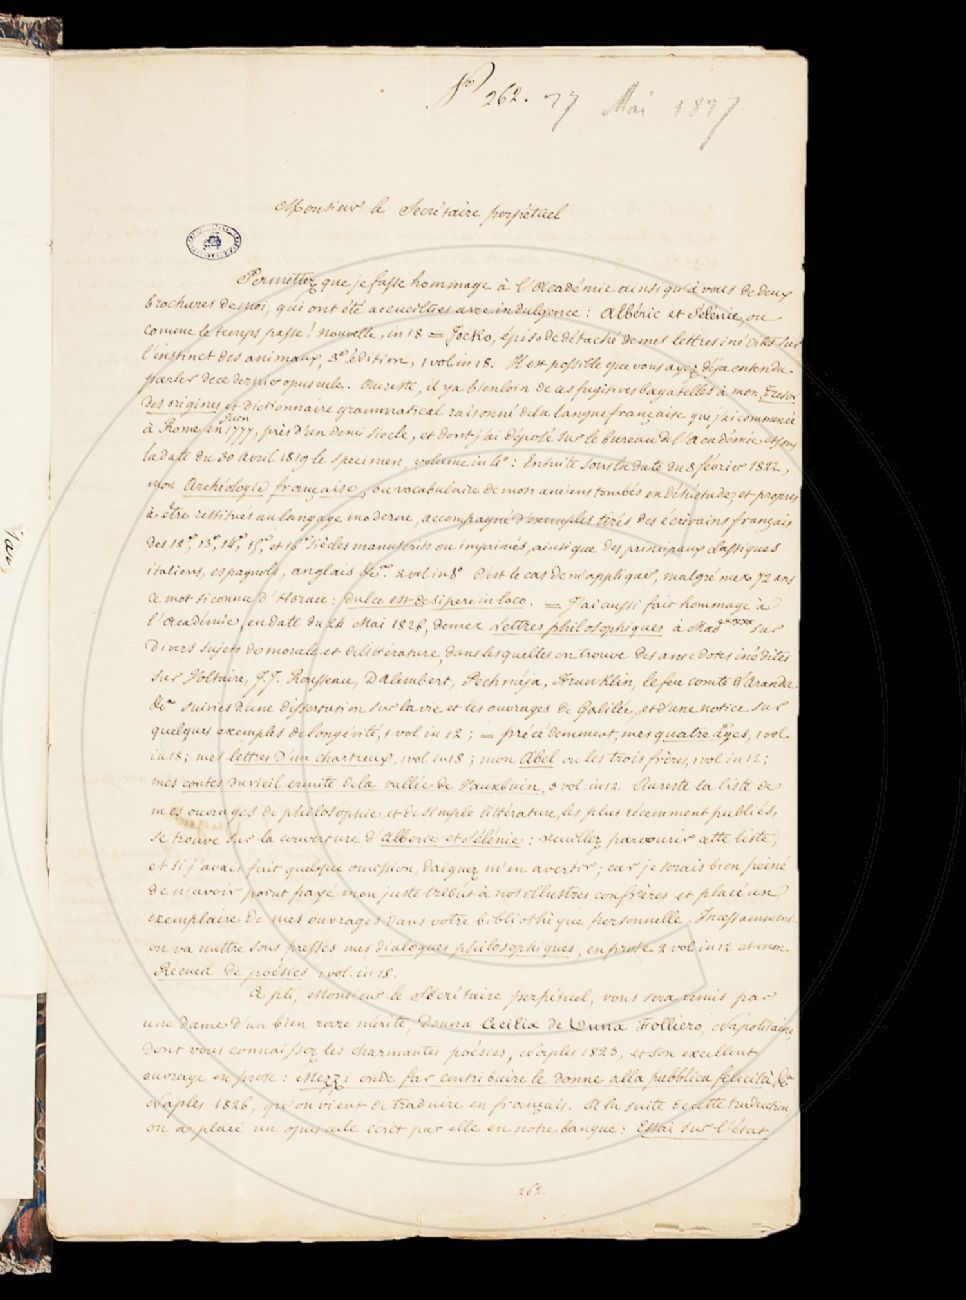 No 262. 27 Mai 1827
Monsieur le Secrétaire perpétuel
Permettez que je fasse hommage à l'Académie ainsi qu'à vous de deux
brochures de moi, qui ont été accueillies avec indulgence : Albéric et Sélénie, ou
comme le temps passe ! nouvelle, in 18 = Jocko, épisode détaché de mes lettres inédites sur
l'instinct des animaux, 3e édition, 1 vol in 18. Il est possible que vous ayez déja entendu
parler de ce dernier opuscule. Au reste, il y a bien loin de ces fugitives bagatelles à mon Trésor
des origines et dictionnaire grammatical raisonné de la langue française que j'ai commencé
à Rome en juin 1777, près d'un demi siècle, et dont j'ai déposé sur le bureau de l'Académie
la date du 30 avril 1819 le specimen, volume in 4o : Ensuite sous la date du 8 février 1822,
mon Archéologie française, ou vocabulaire de mots anciens tombés en désuétude, et propres
à être restitués au langage moderne, accompagné d'exemples tirés des écrivains français
des 12e, 13e, 14e, 15e, et 16e siècles manuscrits ou imprimés, ainsi que des principaux classiques
italiens, espagnols, anglais &ca. 2 vol in 8o C'est le cas de m'appliquer, malgré mes 72 ans
ce mot si connu d'Horace : dulce est desipere in loco. = J'ai aussi fait hommage à
l'Académie, en date du 26 Mai 1826, de mes Lettres philosophiques à Mad sur
divers sujets de morale et de littérature, dans lesquelles on trouve des anecdotes inédites
sur Voltaire, J. J. Rousseau, D'alembert, Pechméja, Franklin, le feu comte d'Aranda
&ca suivies d'une dissertation sur la vie et les ouvrages de Galilée, et d'une notice sur
quelques exemples de longévité, 1 vol in 12 ; = précédemment, mes quatre âges, 1 vol
in 18 ; mes lettres d'un chartreux, 1 vol in 18 ; mon Abel ou les trois frères, 1 vol in 12 ;
mes contes du vieil ermite de la vallée de Vauxbuin, 3 vol in 12. Au reste la liste de
mes ouvrages de philosophie et de simple littérature, les plus récemment publiés,
se trouve sur la couverture d'Albéric et Sélénie : veuillez parcourir cette liste ;
et si j'avais fait quelque omission, daignez m'en avertir ; car je serais bien peiné
de n'avoir point payé mon juste tribut à nos illustres confrères et placé un
exemplaire de mes ouvrages dans votre bibliothèque personnelle. Incessamment
on va mettre sous presse mes dialogues philosophiques, en prose 2 vol in 12 et mon
Recueil de poésies 1 vol. in 18.
Ce pli, Monsieur le Secrétaire perpétuel, vous sera remis par
une dame d'un bien rare mérite, Donna Cecilia de Luna Folliero, Napolitaine,
dont vous connaissez les charmantes poésies, Naples 1823, et son excellent
ouvrage en prose : Mezzi onde far contribuire le donne alla pubblica felicità, &a
Naples 1826, qu'on vient de traduire en français. A la suite de cette traduction
on a placé un opuscule écrit par elle en notre langue : Essai sur l'état
262.